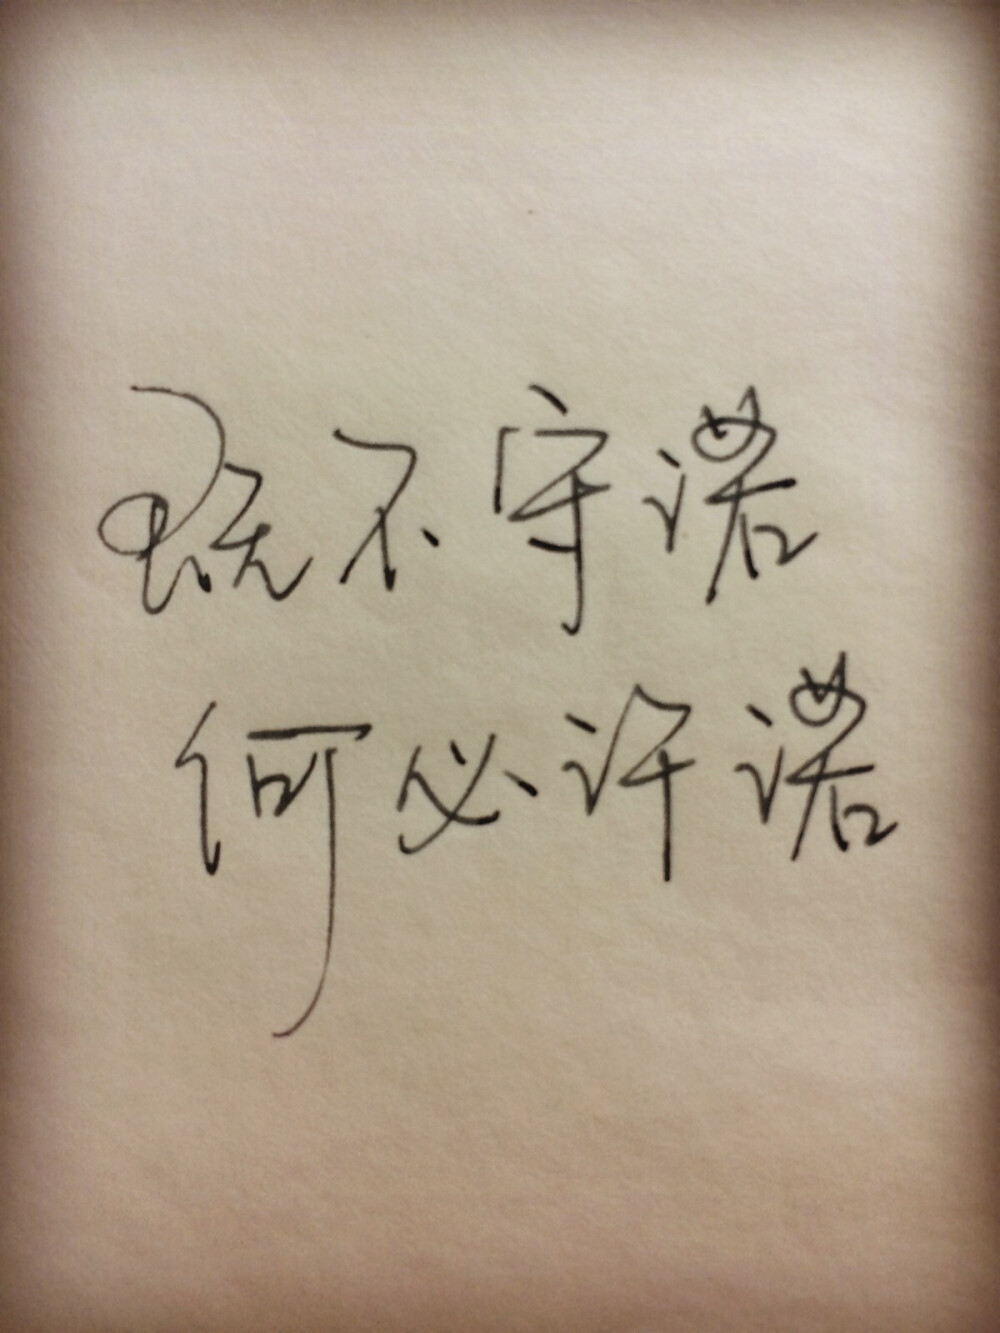 既不守诺
何必许诺